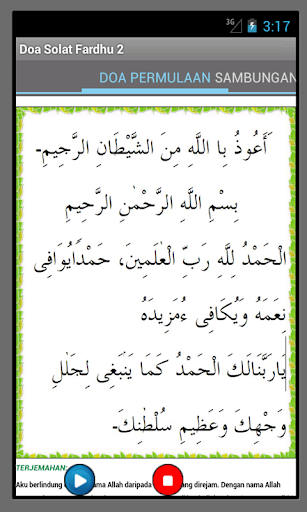 3G 3:17
Doa Solat Fardhu 2
DOA PERMULAAN SAMBUNGAN
أَعُوذُ بِا اللَّهِ مِنَ الشَّيْطَانِ الرَّجِيمِ-
بِسْمِ اللَّهِ الرَّحْمٰنِ الرَّحِيمِ
الْحَمْدُ لِلَّهِ رَبِّ الْعٰلَمِينَ، حَمْدًايُوَافِى
نِعَمَهُ وَيُكَافِى ءُمَزِيدَهُ
يَارَبَّنَالَكَ الْحَمْدُ كَمَا يَنْبَغِى لِجَلٰلِ
وَجْهِكَ وَعَظِيمِ سُلْطٰنِكَ-
TERJEMAHAN:
Aku berlindung ama Allah daripada ang direjam. Dengan nama Allah